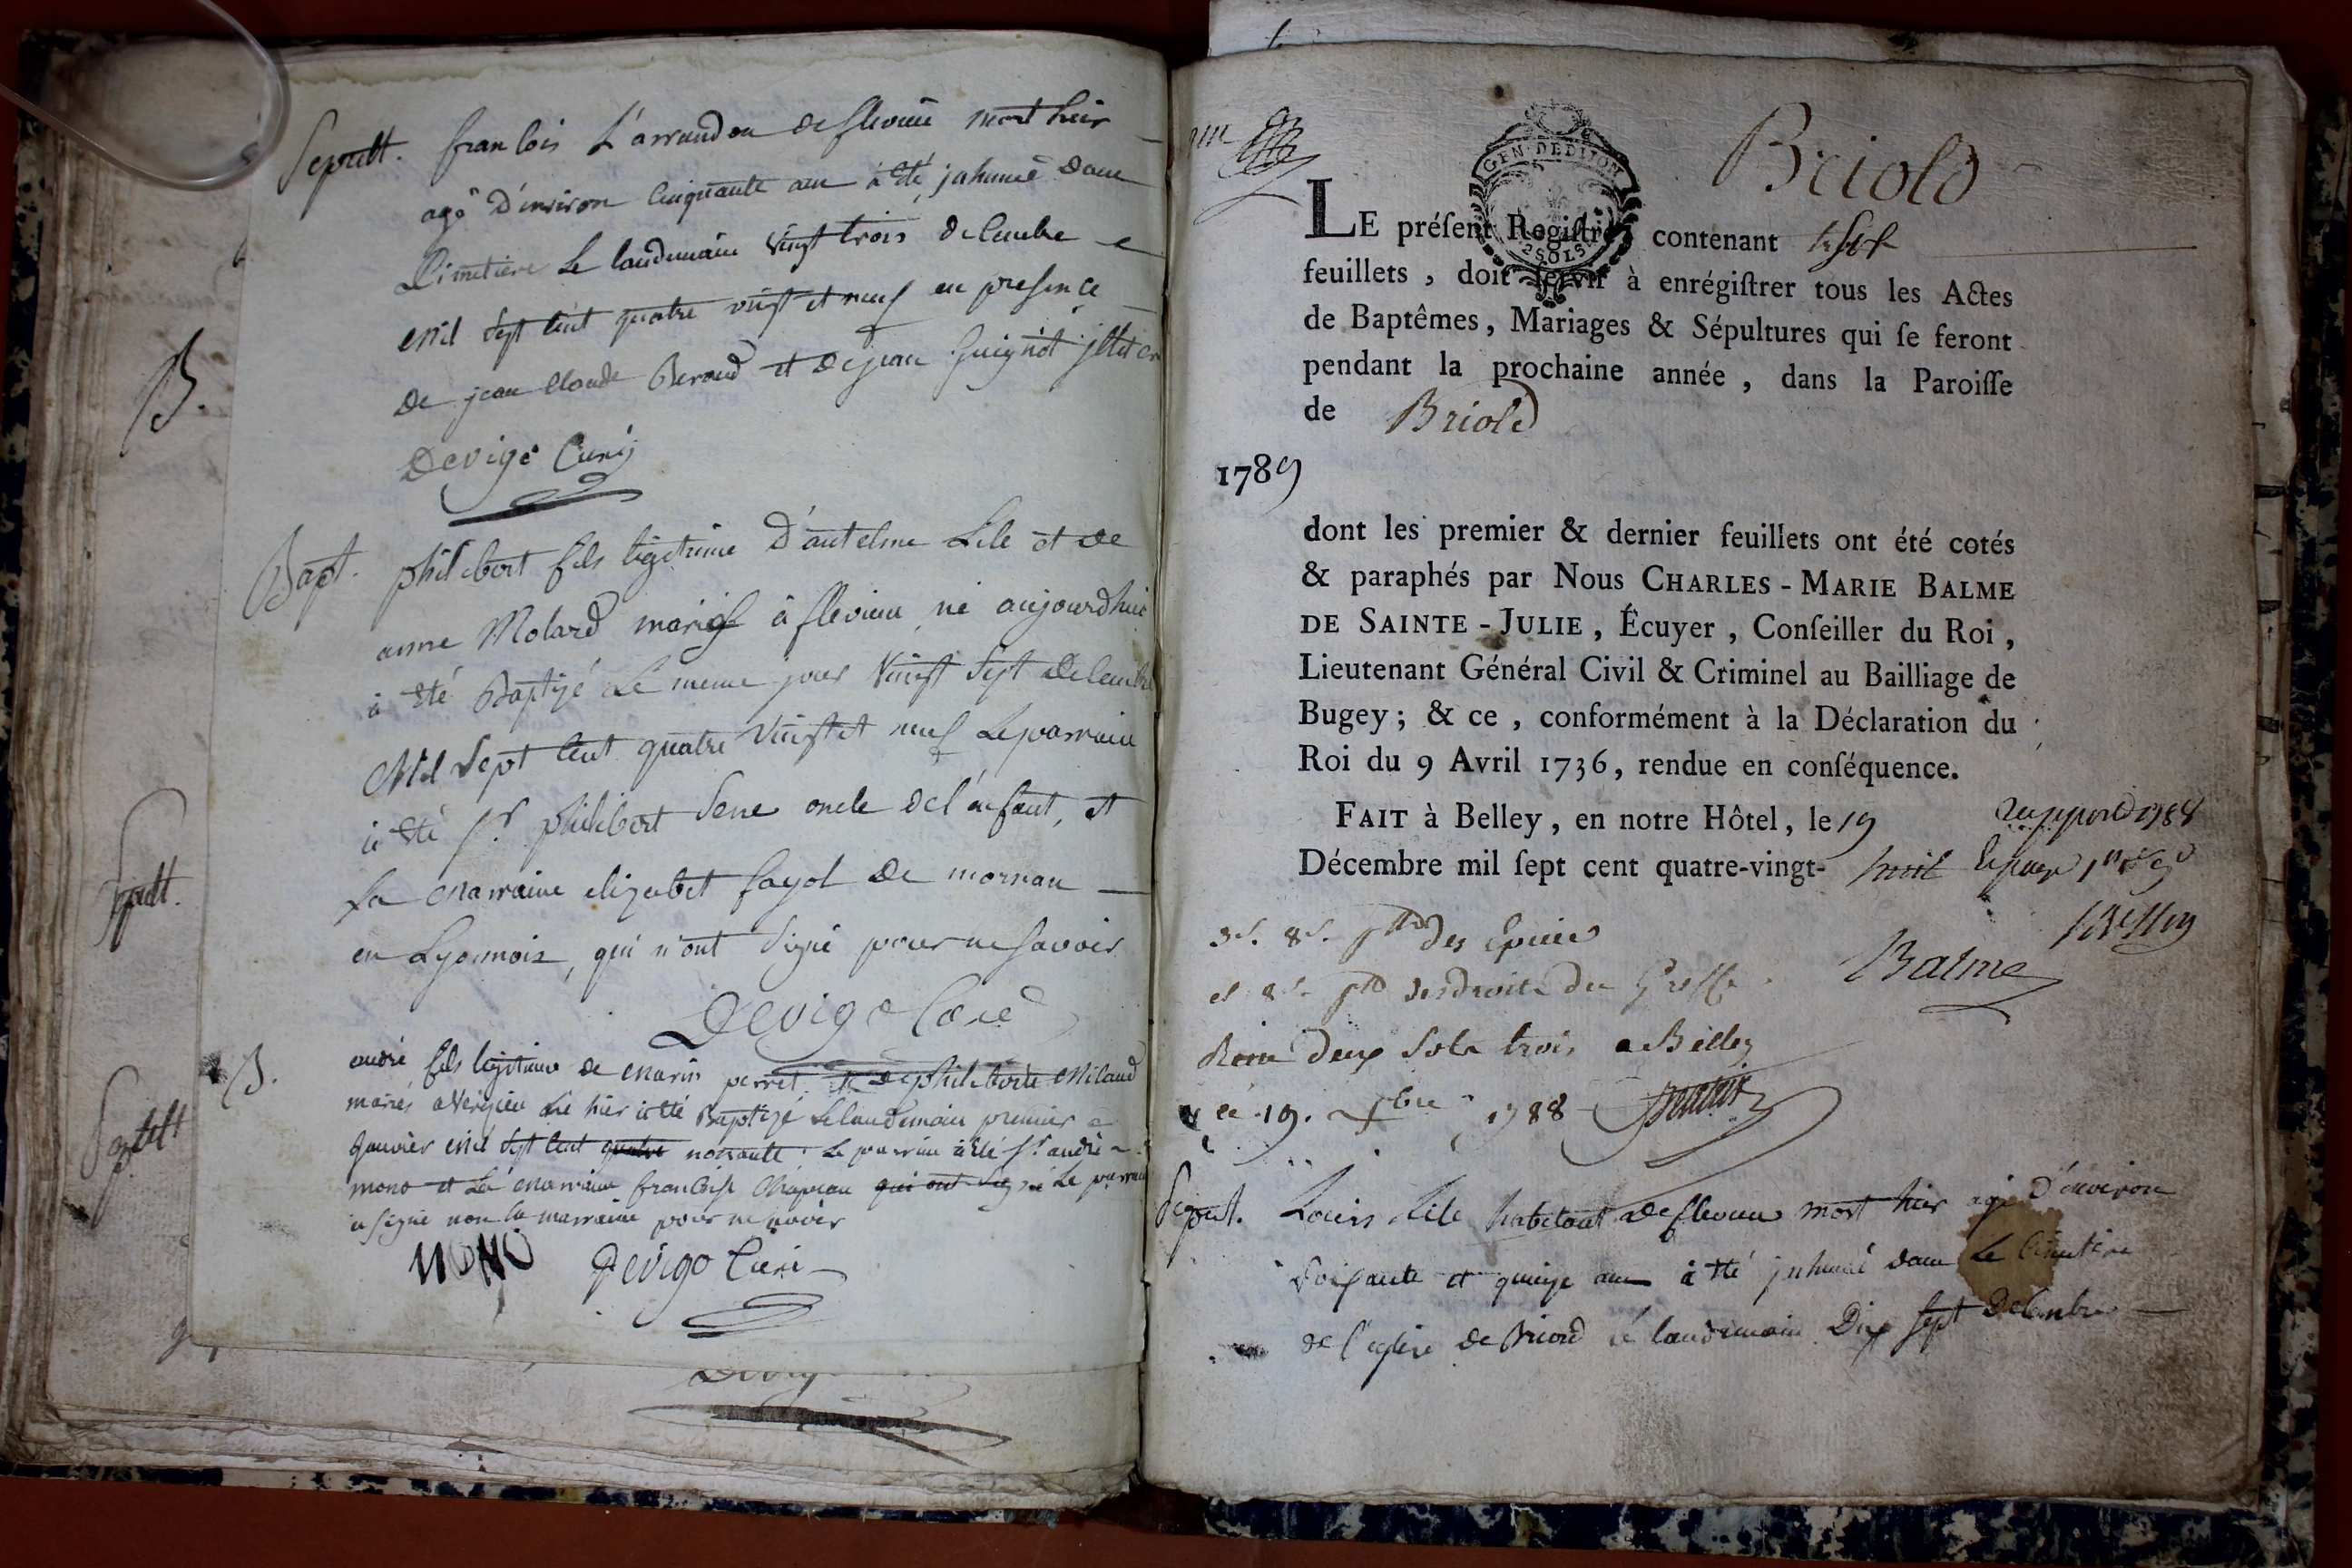 Sepult. francois L'arrandon de flevieu mort hier
agé d'environ cinquante ans à été inhumé dans
Cimetiere le landemain vingt trois decembre
mil sept cent quatre vingt et neuf en presence
de jean claude Beroud et de jean Guignot
Devigo Curé
Bapt. philibert fils legitime d'antelme Lile et de
anne Molard mariés à flevieu né aujourdhui
à été Baptizé le meme jour vingt sept decembre
Mil sept cent quatre vingt et neuf Le parrain
à été Sr. philibert Sene oncle de l'enfant, et
La marraine elizabet fayol de mornan
en Lyonnois, qui n'ont signé pour ne savoir
Devigo Curé
B. andré fils legitime de marin perret et de philiberte Milaud
mariés a Verizieu né hier à été Baptizé le landemain premier
janvier mil sept cent quatre nonante Le parrain à été Sr. andré
mono et La marraine francoise Chapeau qui ont signé Le parrain
a signé non la marraine pour ne savoir
MONO Devigo Curé
B.
Sepult.
Sepult
Briold
GEN. DE DIJON
2 SOLS
LE préſent Regiſtre, contenant
feuillets , doit ſervir à enrégiſtrer tous les Actes
de Baptêmes, Mariages & Sépultures qui ſe feront
pendant la prochaine année , dans la Paroiſſe
de Briold
1789
dont les premier & dernier feuillets ont été cotés
& paraphés par Nous CHARLES - MARIE BALME
DE SAINTE - JULIE , Écuyer , Conſeiller du Roi ,
Lieutenant Général Civil & Criminel au Bailliage de
Bugey ; & ce , conformément à la Déclaration du
Roi du 9 Avril 1736, rendue en conſéquence.
FAIT à Belley, en notre Hôtel, le 19
Décembre mil ſept cent quatre-vingt- huit
3s. 8d. des Epices
et 8s. des droits du Greffe
Balme
Recu deux sols trois a Belley
ce 19. Xbre 1788
Sepult. Louis Lile habitant de flevieu mort hier agé d'environ
soixante et quinze ans à été inhumé dans Le Cimetiere
de l'eglise de Briord le landemain Dix sept decembre